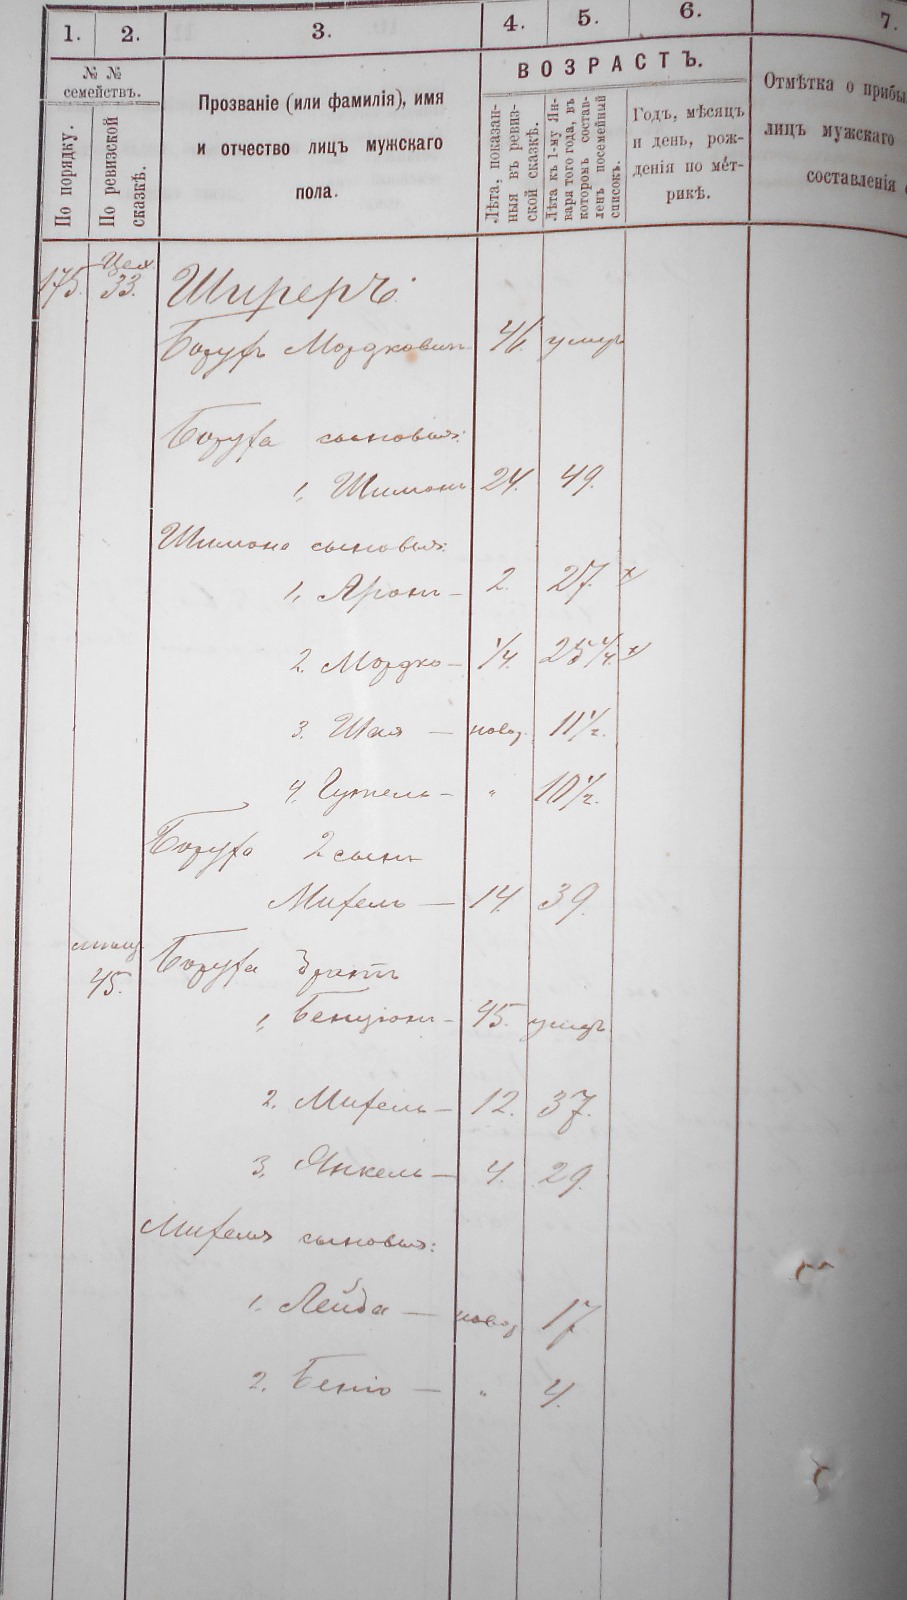 1. 2. 3. 4. 5. 6. 7.
№ № семействъ.
По порядку.
По ревизской сказкѣ.
Прозваніе (или фамилія), имя
и отчество лицъ мужскаго
пола.
ВОЗРАСТЪ.
Лѣта, показан-
ныя въ ревиз-
ской сказкѣ.
Лѣта къ 1-му Ян-
варя того года, въ
которомъ состав-
ленъ посемейный
списокъ.
Годъ, мѣсяцъ
и день, рож-
денія по мет-
рикѣ.
Отмѣтка о прибы
лицъ мужскаго
составленія
175. Цех. 33. Ширеръ.
Борухъ Мордковичъ 46. умеръ
Боруха сыновья:
1, Шимонъ 24. 49.
Шимона сыновья:
1, Аронъ — 2. 27. х
2. Мордко — 1/4. 25 1/4. х
3. Шая — новор. 11 1/2.
4. — „ 10 1/2.
Боруха 2 сынъ
Михель — 14. 39.
мѣщ. 45. Боруха братъ
1, Бенціонъ — 45. умеръ.
2. Михель — 12. 37.
3, Янкель — 4. 29.
Михеля сыновья:
1. Лейба — новор. 17
2. — „ 4.